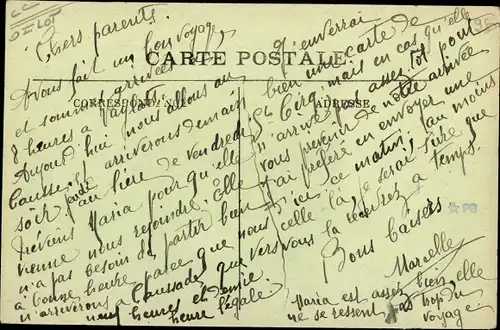 CARTE POSTALE
CORRESPONDANCE
ADRESSE
Chers parents
Avons fait un bon voyage
et sommes arrivées
8 heures à
Aujourd'hui nous allons au
arriverons demain
soir au lieu de vendredi
Préviens Maria pour qu'elle
vienne nous rejoindre. Elle
n'a pas besoin de partir bien
à bonne heure parce que nous
n'arriverons à Caussade que vers
neuf heures et demie
heure légale.
J'enverrai
bien une carte de
St Cirq, mais en cas qu'elle
n'arrive pas assez tôt pour
vous prévenir de notre arrivée
j'ai préféré en envoyer une
d'ici ce matin, au moins
celle là je serai sûre que
vous la recevrez à temps.
Bons baisers
Marcelle
Maria est assez bien, elle
ne se ressent pas trop du
voyage